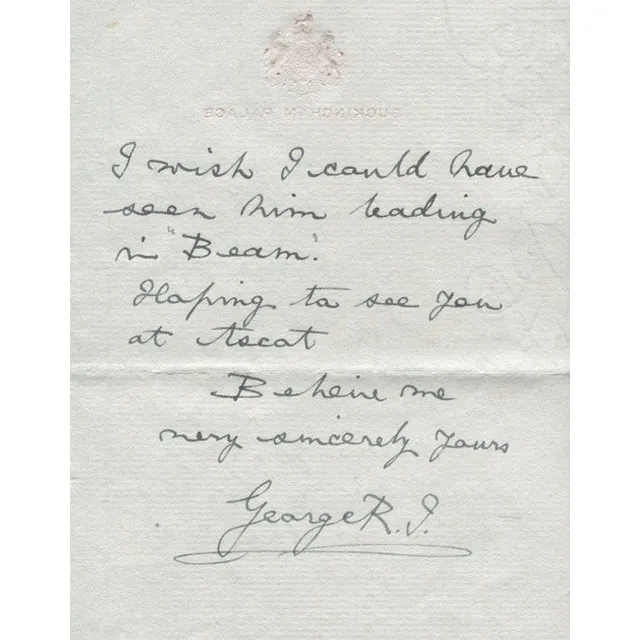 BUCKINGHAM PALACE
I wish I could have
seen him leading
in "Beam".
Hoping to see you
at Ascot
Believe me
very sincerely yours
George R.I.